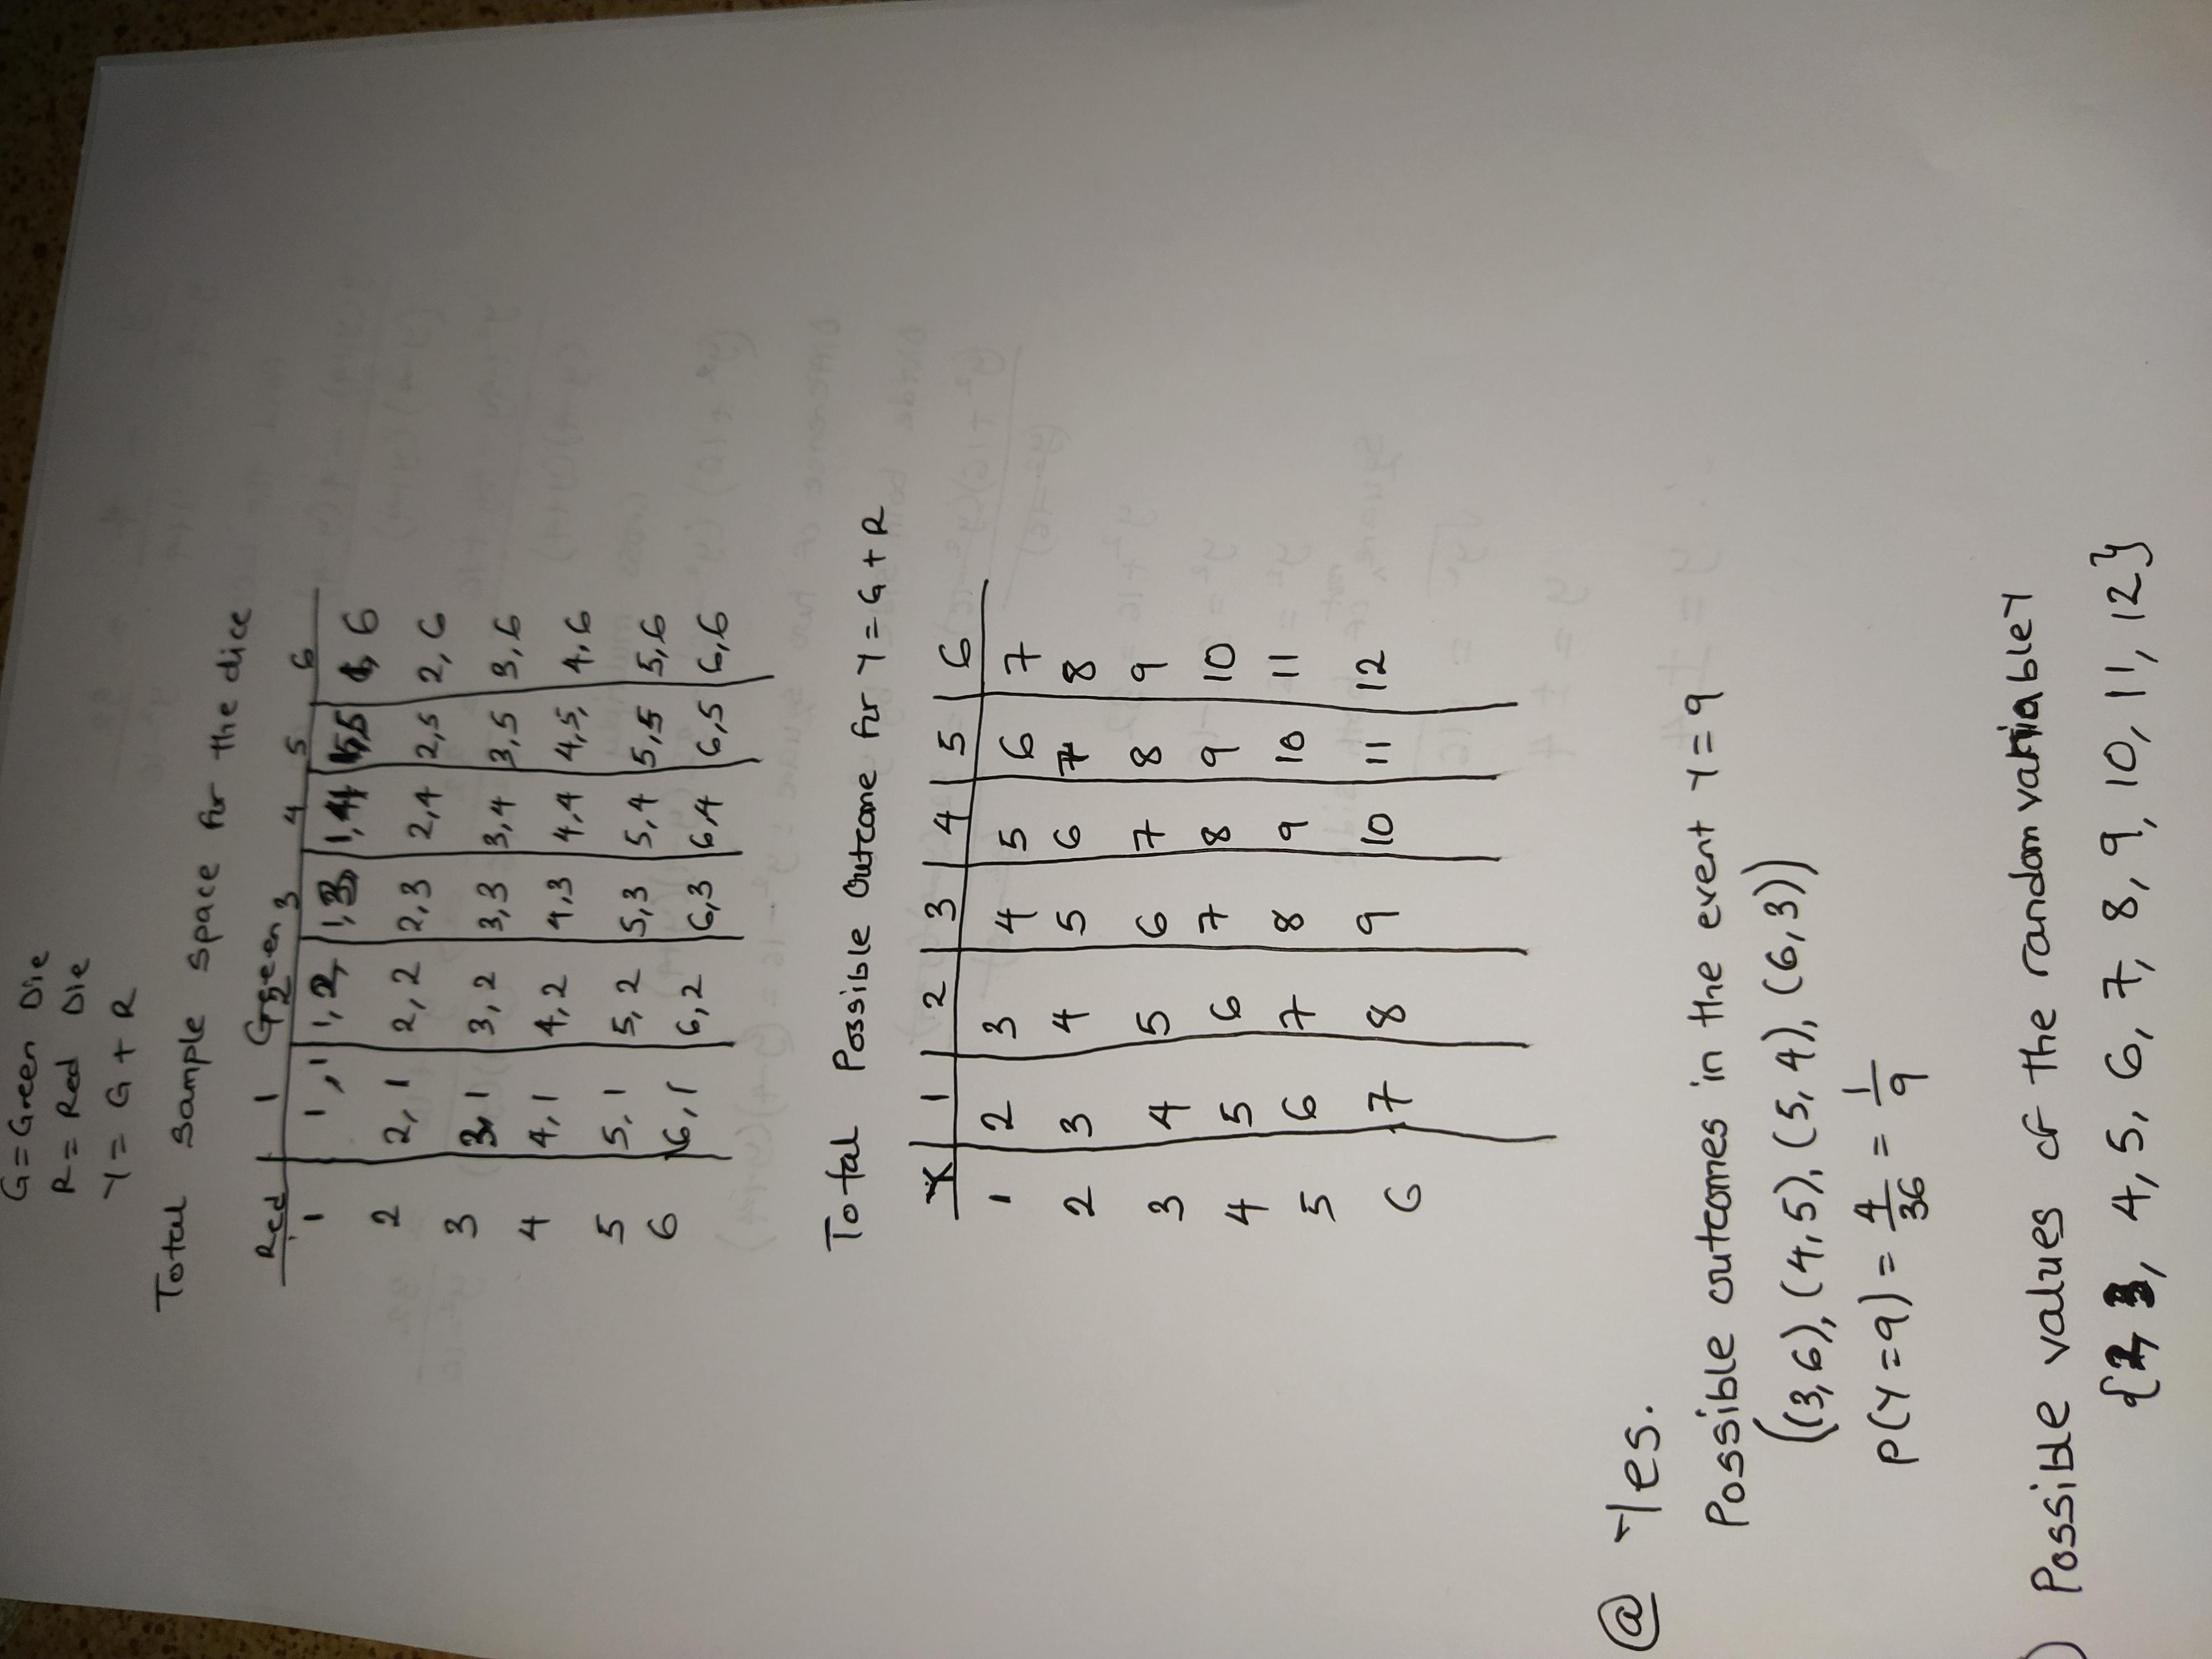 G = Green Die
R = Red Die
Y = G + R
Total sample space for the dice
Green
Red 1 2 3 4 5 6
1 1,1 1,2 1,3 1,4 1,5 1,6
2 2,1 2,2 2,3 2,4 2,5 2,6
3 3,1 3,2 3,3 3,4 3,5 3,6
4 4,1 4,2 4,3 4,4 4,5, 4,6
5 5,1 5,2 5,3 5,4 5,5 5,6
6 6,1 6,2 6,3 6,4 6,5 6,6
Total Possible Outcome for Y = G + R
1 2 3 4 5 6
1 2 3 4 5 6 7
2 3 4 5 6 7 8
3 4 5 6 7 8 9
4 5 6 7 8 9 10
5 6 7 8 9 10 11
6 7 8 9 10 11 12
ⓐ Yes.
Possible outcomes in the event Y = 9
((3,6), (4,5), (5,4), (6,3))
P(Y=9) = 4/36 = 1/9
) Possible values of the random variable Y
{2, 3, 4, 5, 6, 7, 8, 9, 10, 11, 12}